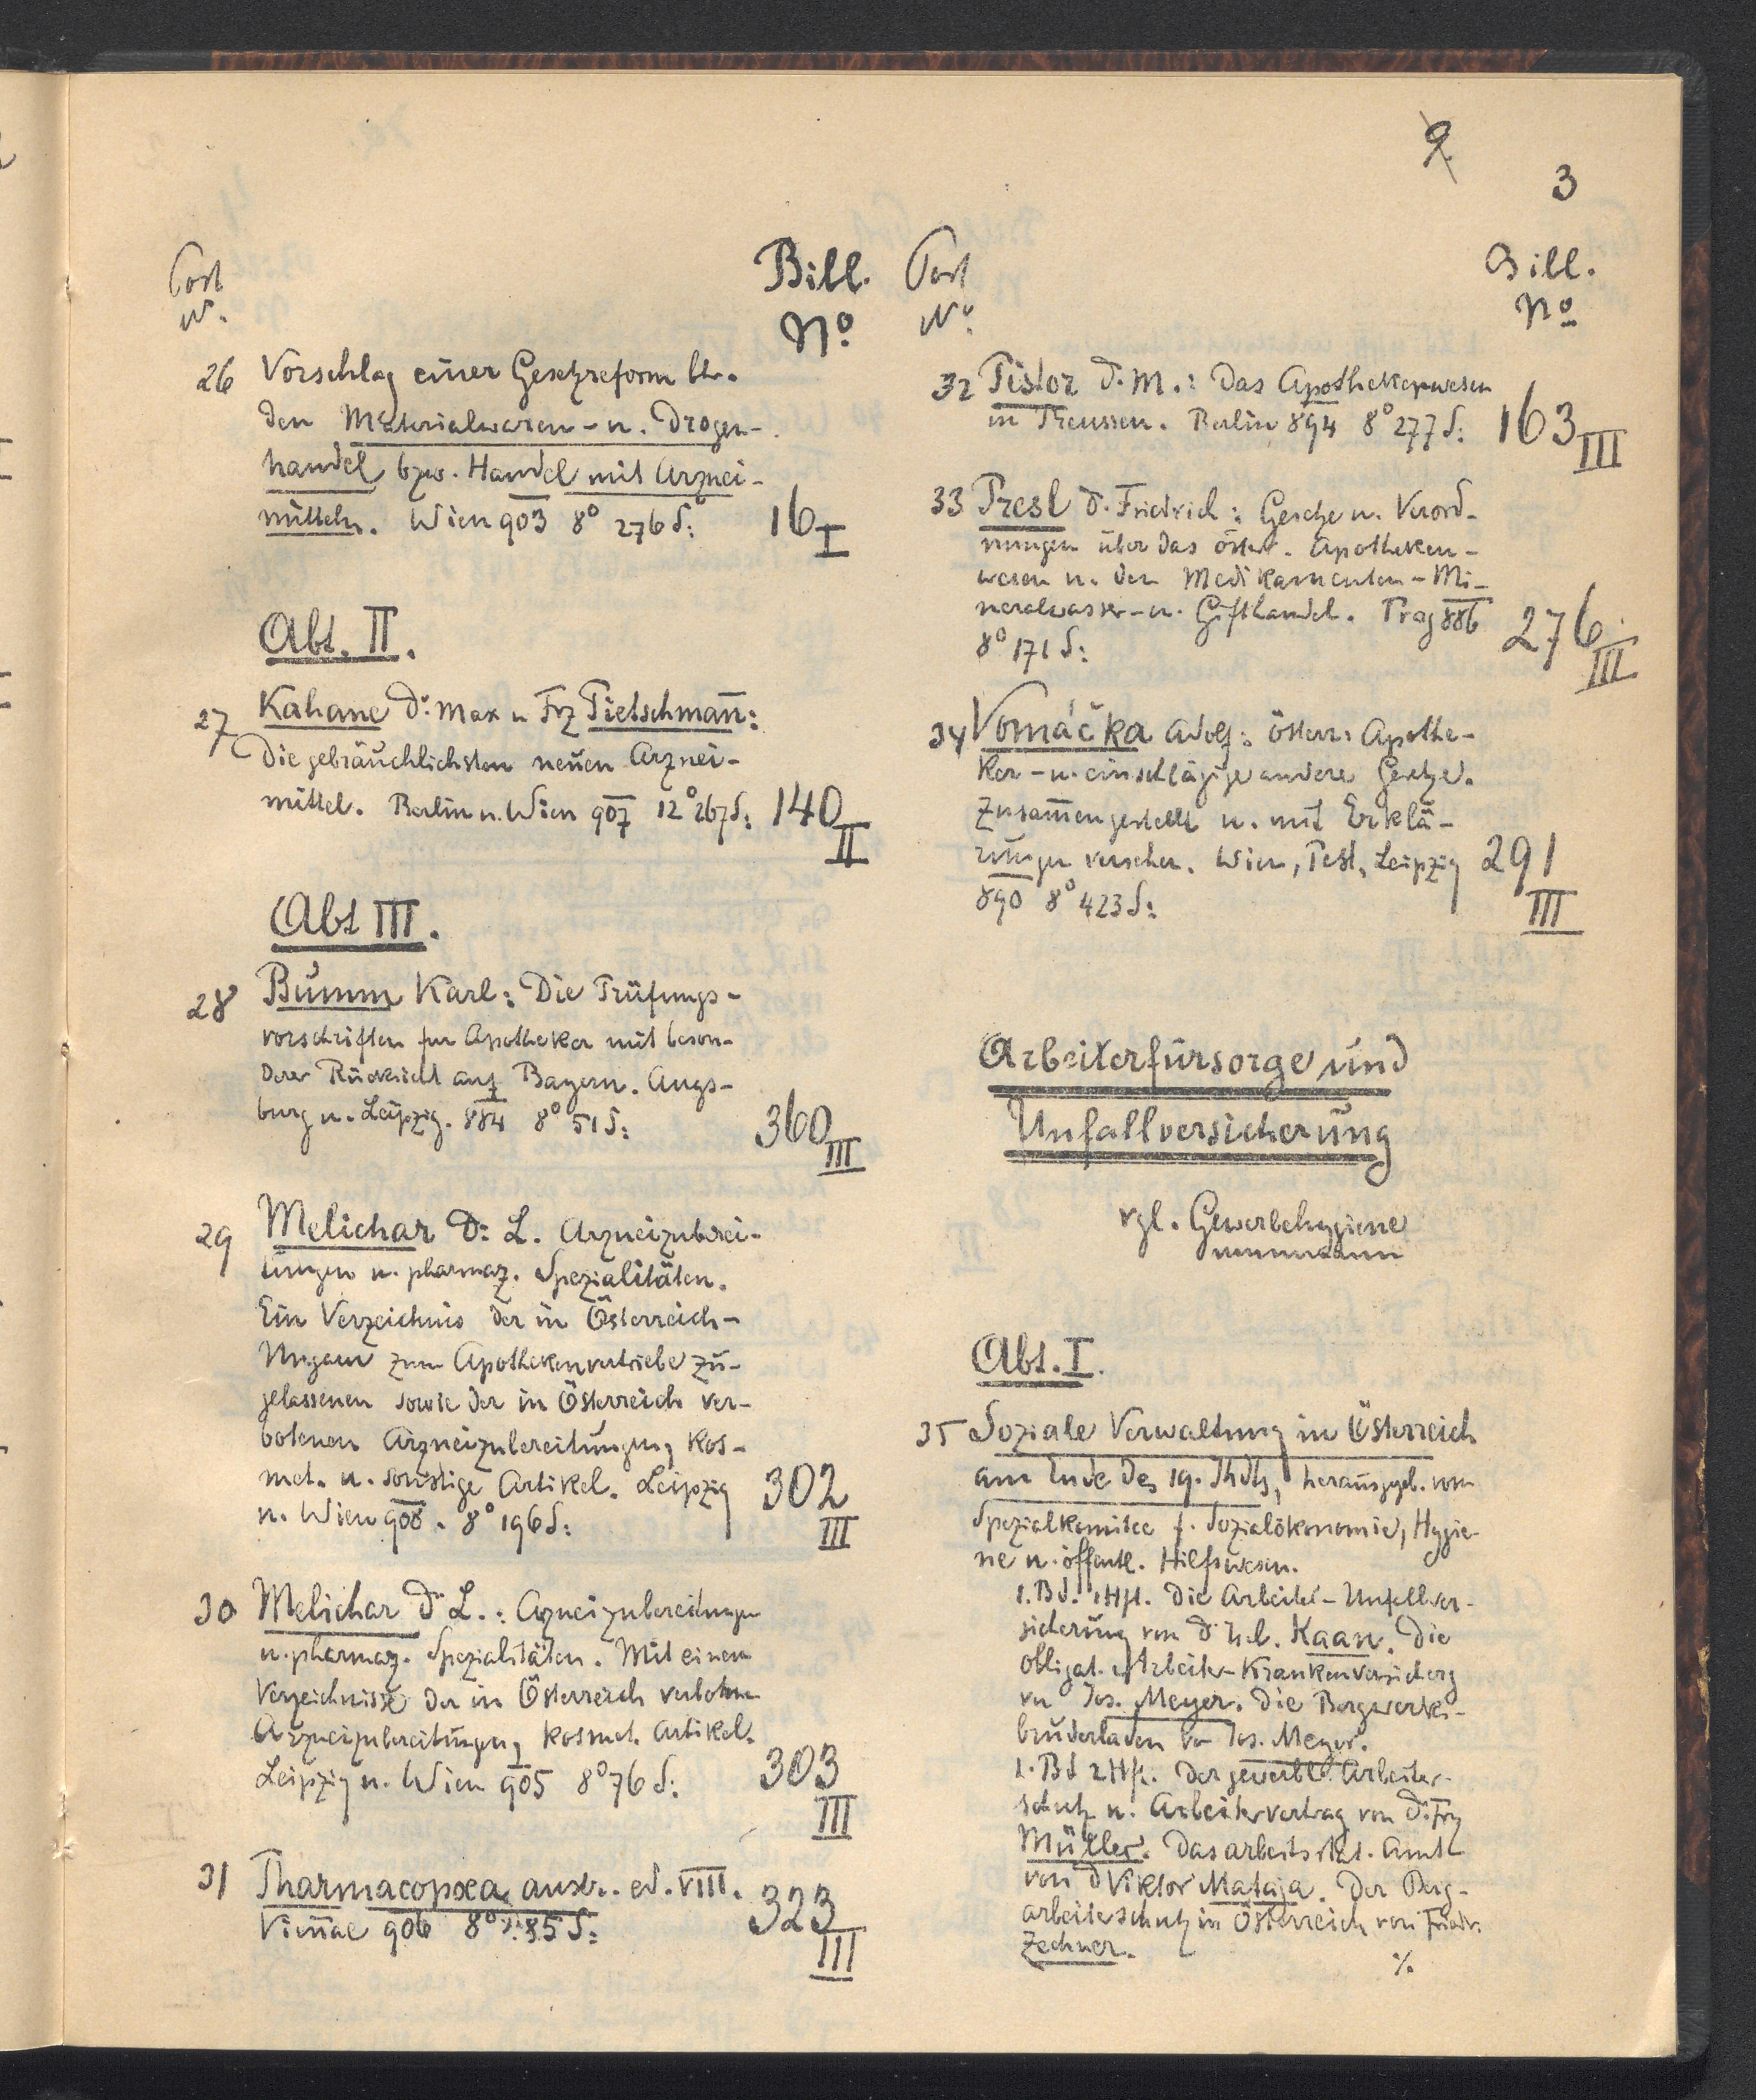 9.
3
Post
No.
Bill.
No
26 Vorschlag einer Gesetzreform btr.
den Materialwaren- u. Drogen-
handel bzw. Handel mit Arznei-
mitteln. Wien 903 8° 276 S: 16 I
Abt. II.
27 Kahane Dr. Max u Frz Pietschmañ:
Die gebräuchlichsten neuen Arznei-
mittel. Berlin u. Wien 907 12° 267 S: 140 II
Abt III.
28 Bumm Karl: Die Prüfungs-
vorschriften für Apotheker mit beson-
derer Rücksicht auf Bayern. Augs-
burg u. Leipzig. 884 8° 51 S: 360 III
29 Melichar Dr. L. Arzneizuberei-
tungen u. pharmaz. Spezialitäten.
Ein Verzeichnis der in Österreich-
Ungarn zum Apothekenvertriebe zu-
gelassenen sowie der in Österreich ver-
botenen Arzneizubereitungen, kos-
met. u. sonstige Artikel. Leipzig 302 III
u. Wien 908. 8° 196 S:
30 Melichar Dr L.: Arzneizubereitungen
u. pharmaz. Spezialitäten. Mit einem
Verzeichnisse der in Österreich verbotenen
Arzneizubereitungen, kosmet. Artikel.
Leipzig u. Wien 905 8° 76 S: 303 III
31 Pharmacopoea austr. ed. VIII. 323 III
Vieñae 906 8° S:
Post
No.
Bill.
No
32 Pistor Dr. M.: Das Apothekenwesen
in Preussen. Berlin 894 8° 277 S: 163 III
33 Presl Dr. Friedrich: Gesetze u. Verord-
nungen über das österr. Apotheken-
wesen u. den Medikamenten-Mi-
neralwasser- u. Gifthandel. Prag 886 276 III
8° 171 S:
34 Vomáčka Adolf: österr. Apothe-
ker- u. einschlägige andere Gesetze.
Zusam̄engestellt u. mit Erklä-
rungen versehen. Wien, Pest, Leipzig 291 III
890 8° 423 S:
Arbeiterfürsorge und
Unfallversicherung
vgl. Gewerbehygiene
Abt. I.
35 Soziale Verwaltung in Österreich
am Ende des 19. Jhdts, herausgegeb. vom
Spezialkomitee f. Sozialökonomie, Hygie-
ne u. öffentl. Hilfswesen.
1. Bd. 1 Hft. Die Arbeiter-Unfallver-
sicherung von Dr Jul. Kaan. Die
obligat. Arbeiter-Krankenversicherg
von Jos. Meyer. Die Bergwerks-
bruderladen von Jos. Meyer.
1. Bd 2 Hft. Der gewerbl. Arbeiter-
schutz u. Arbeitervertrag von Dr. Frz
Müller. Das arbeitsstat. Amt
von Dr Viktor Mataja. Der Berg-
arbeiterschutz in Österreich von Friedr.
Zechner. ./.